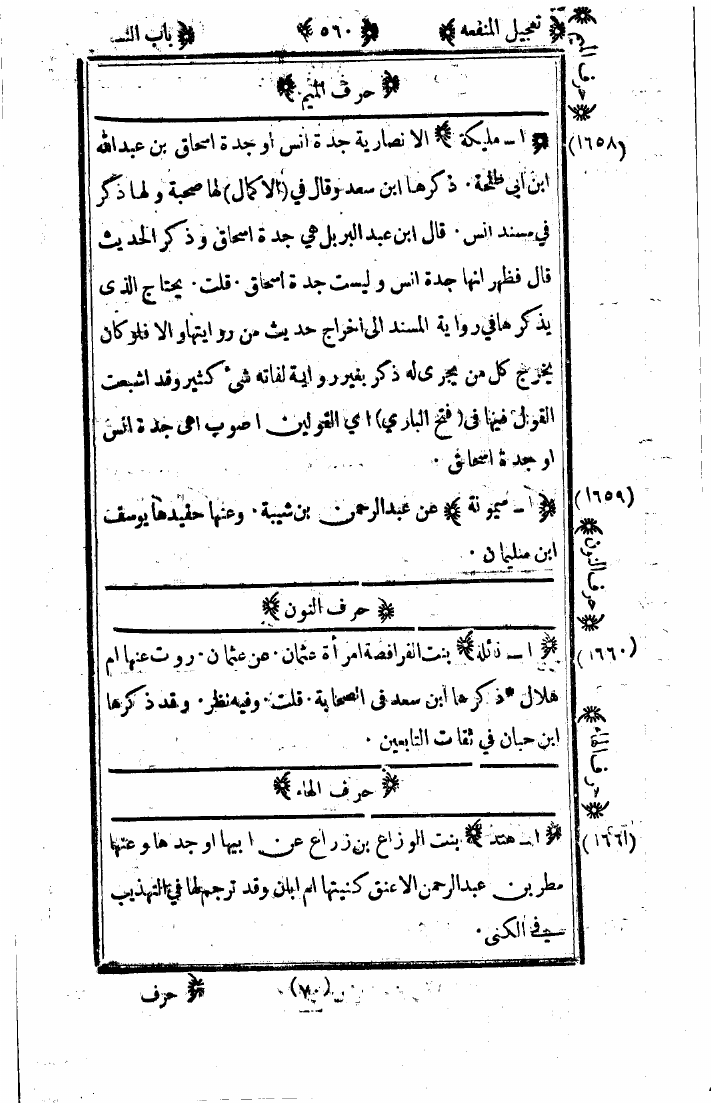 تعجيل المنفعه ﴿ ٥٦٠ ﴾ باب النسـ
﴿ حرف الميم ﴾
﴿ حرف الميم ﴾
(١٦٥٨)
﴿ ا ـ مليكة ﴾ الانصارية جدة انس او جدة اسحاق بن عبدالله
ابن ابى طلحة ۰ ذكرها ابن سعد وقال في (الاكمال) لها صحبة ولها ذكر
في مسند انس ۰ قال ابن عبد البر بل هي جدة اسحاق وذكر الحديث
قال فظهر انها جدة انس وليست جدة اسحاق ۰ قلت ۰ يحتاج الذى
يذكرها في رواية المسند الى اخراج حديث من روايتها والا فلو كان
يخرج كل من يجرى له ذكر بغير رواية لفاته شئ كثير وقد اشبعت
القول فيها فى (فتح الباري) اي القولين اصوب اهى جدة انس
او جدة اسحاق ۰
(١٦٥٩)
﴿ ا ـ ميمونة ﴾ عن عبدالرحمن بن شيبة ۰ وعنها حفيدها يوسف
ابن سليمان ۰
﴿ حرف النون ﴾
﴿ حرف النون ﴾
(١٦٦٠)
﴿ ا ـ نائلة ﴾ بنت الفرافصة امرأة عثمان ۰ عن عثمان ۰ روت عنها ام
هلال * ذكرها ابن سعد فى الصحابة ۰ قلت ۰ وفيه نظر ۰ وقد ذكرها
ابن حبان في ثقات التابعين ۰
﴿ حرف الهاء ﴾
﴿ حرف الهاء ﴾
(١٦٦١)
﴿ ا ـ هند ﴾ بنت الوزاع بن زراع عن ابيها او جدها وعنها
مطر بن عبدالرحمن الاعنق كنيتها ام ابان وقد ترجم لها في التهذيب
في الكنى ۰
(٧٠)
﴿ حرف